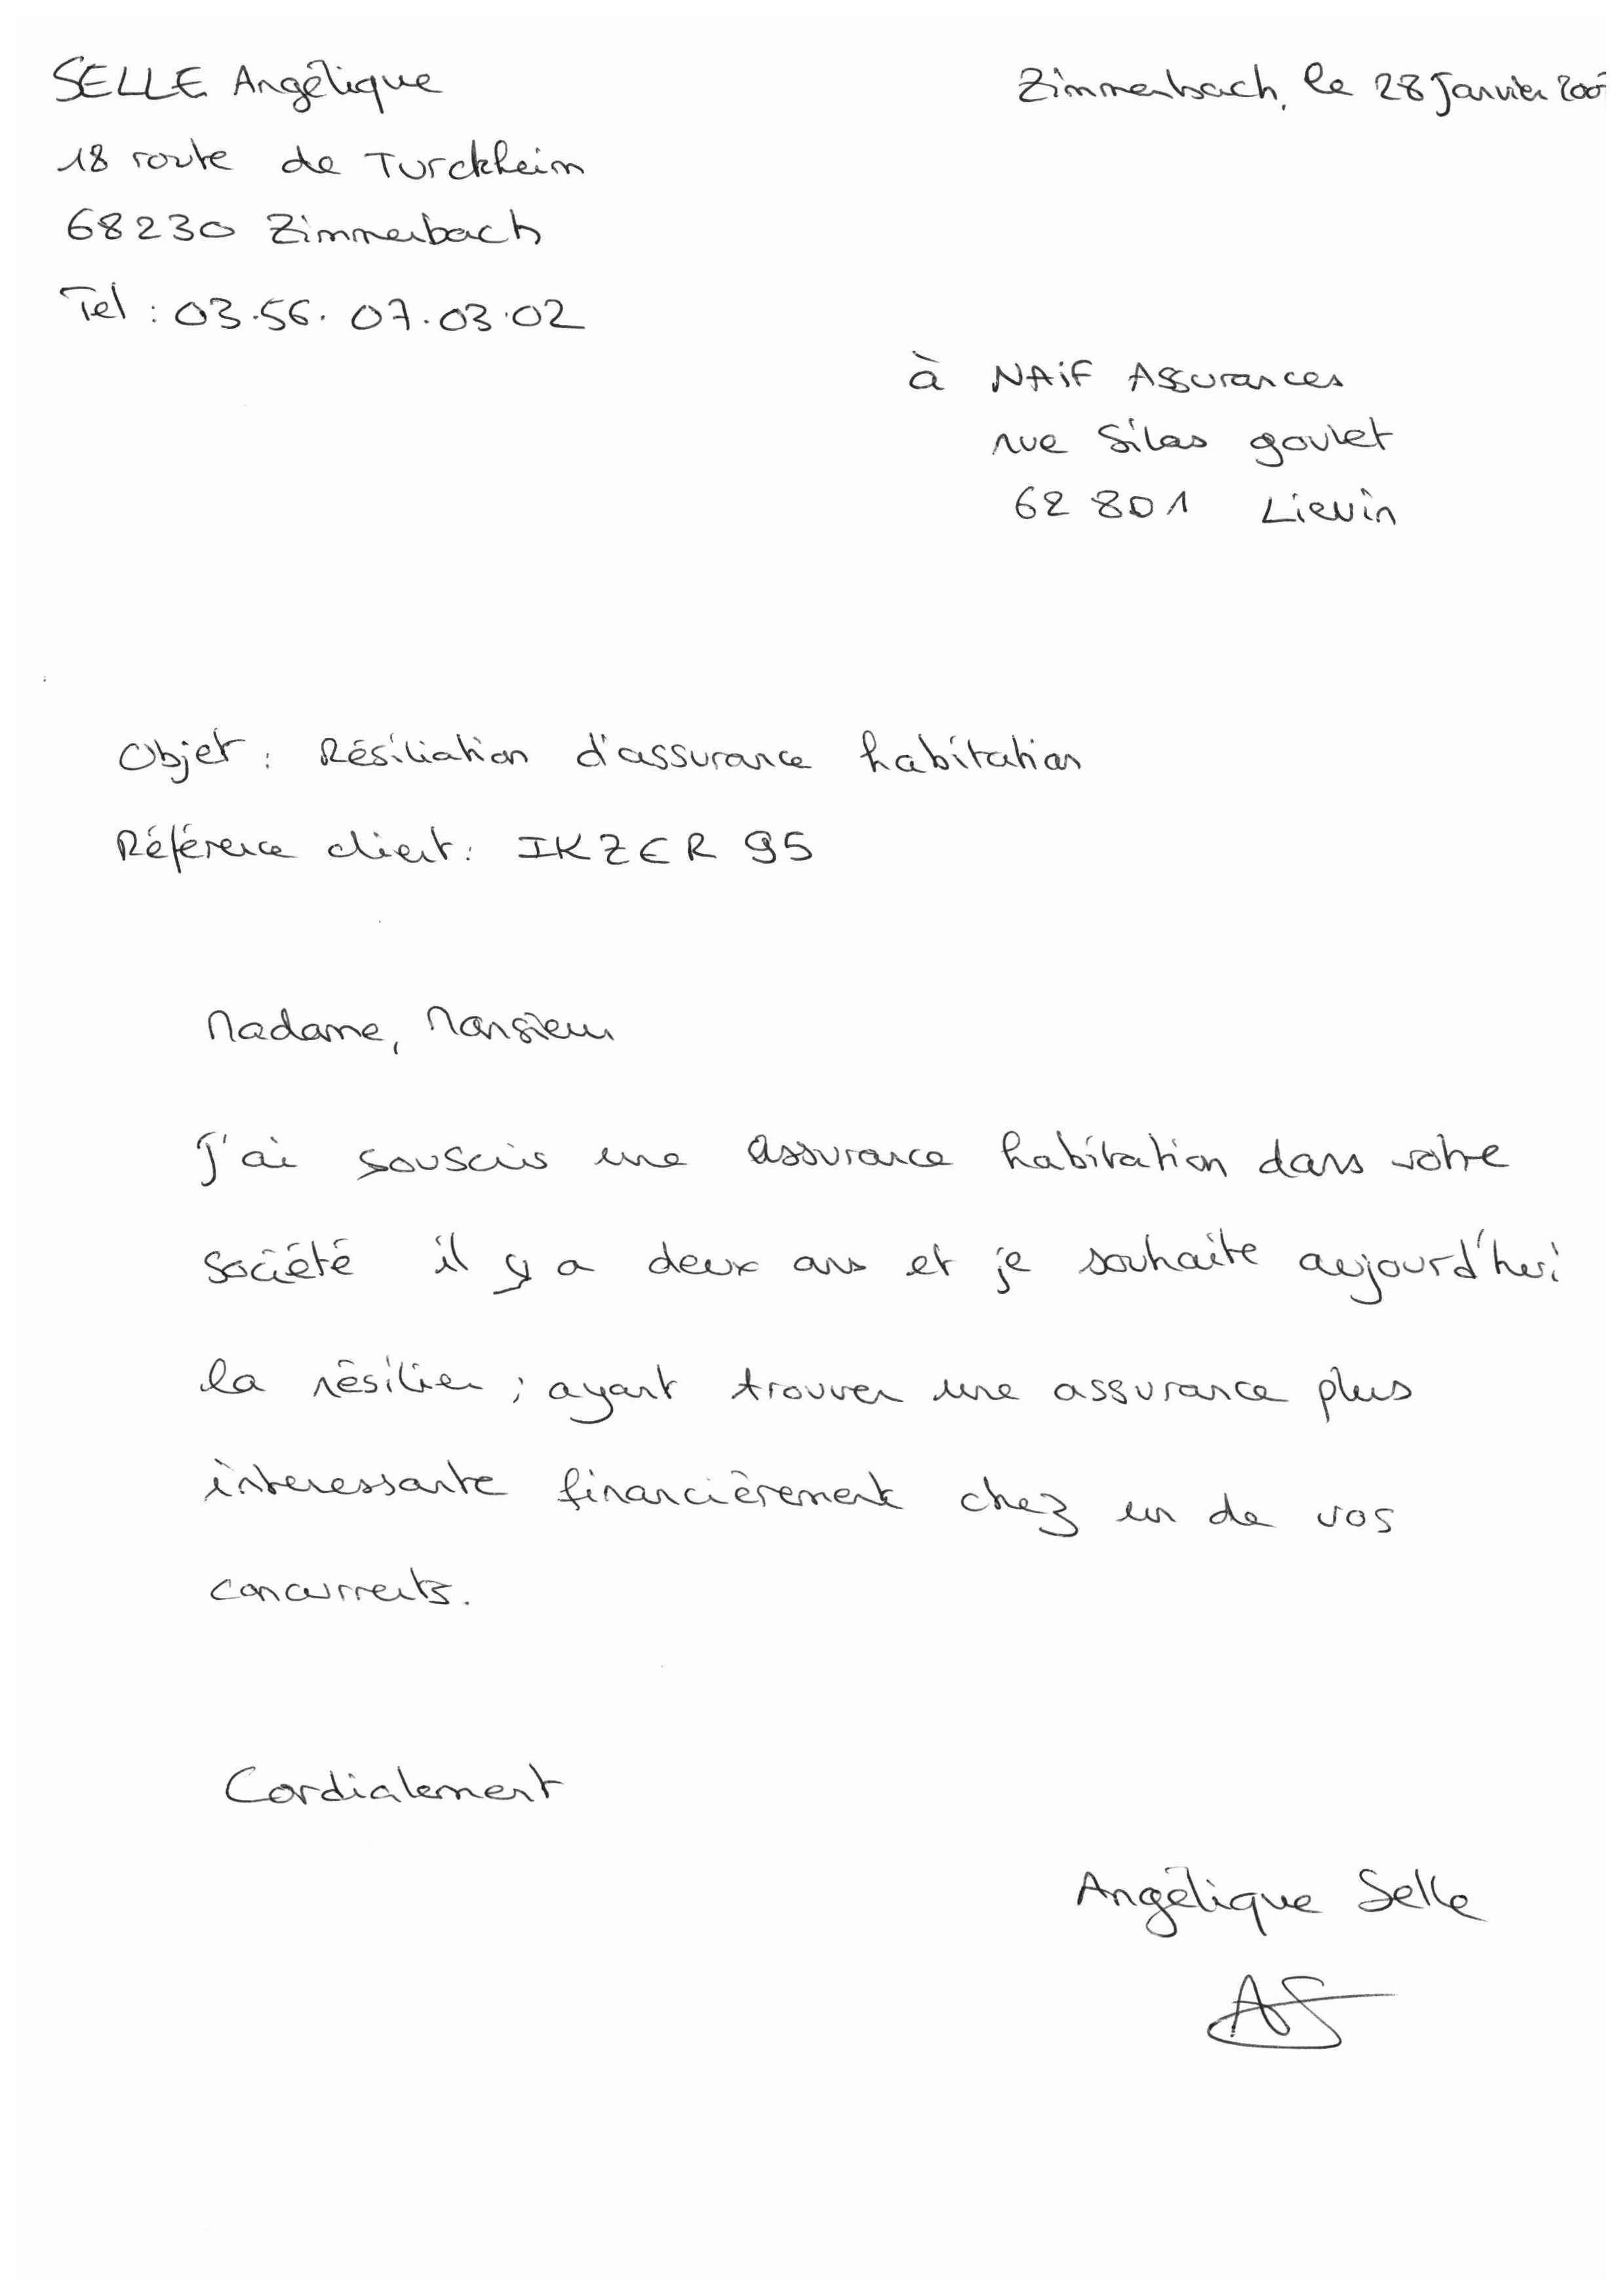 SELLE Angélique
Zimmerbach, le 28 Janvier
18 route de Turckheim
68230 Zimmerbach
Tel : 03.56.07.03.02
à NAIF Assurances
rue Silas goulet
62 801 Lievin
Objet : Résiliation d'assurance habitation
Référence client : IKZER 95
Madame, Monsieur
J'ai souscris une assurance habitation dans votre
société il y a deux ans et je souhaite aujourd'hui
la résilier ; ayant trouver une assurance plus
interessante financièrement chez un de vos
concurrents.
Cordialement
Angélique Selle
AS